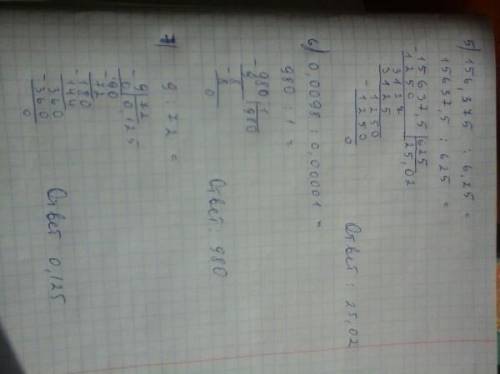 5) 156,375 : 6,25 =
15637,5 : 625 =
-15637,5 | 625
1250 | 25,02
3125
-1250
1250
0
Ответ: 25,02
6) 0,0098 : 0,00001 =
980 : 1 =
-980 | 1
9 | 980
-8
8
0
Ответ: 980
7) 9 : 72 =
-9 | 72
0 | 0,125
-90
72
-180
144
-360
360
0
Ответ 0,125